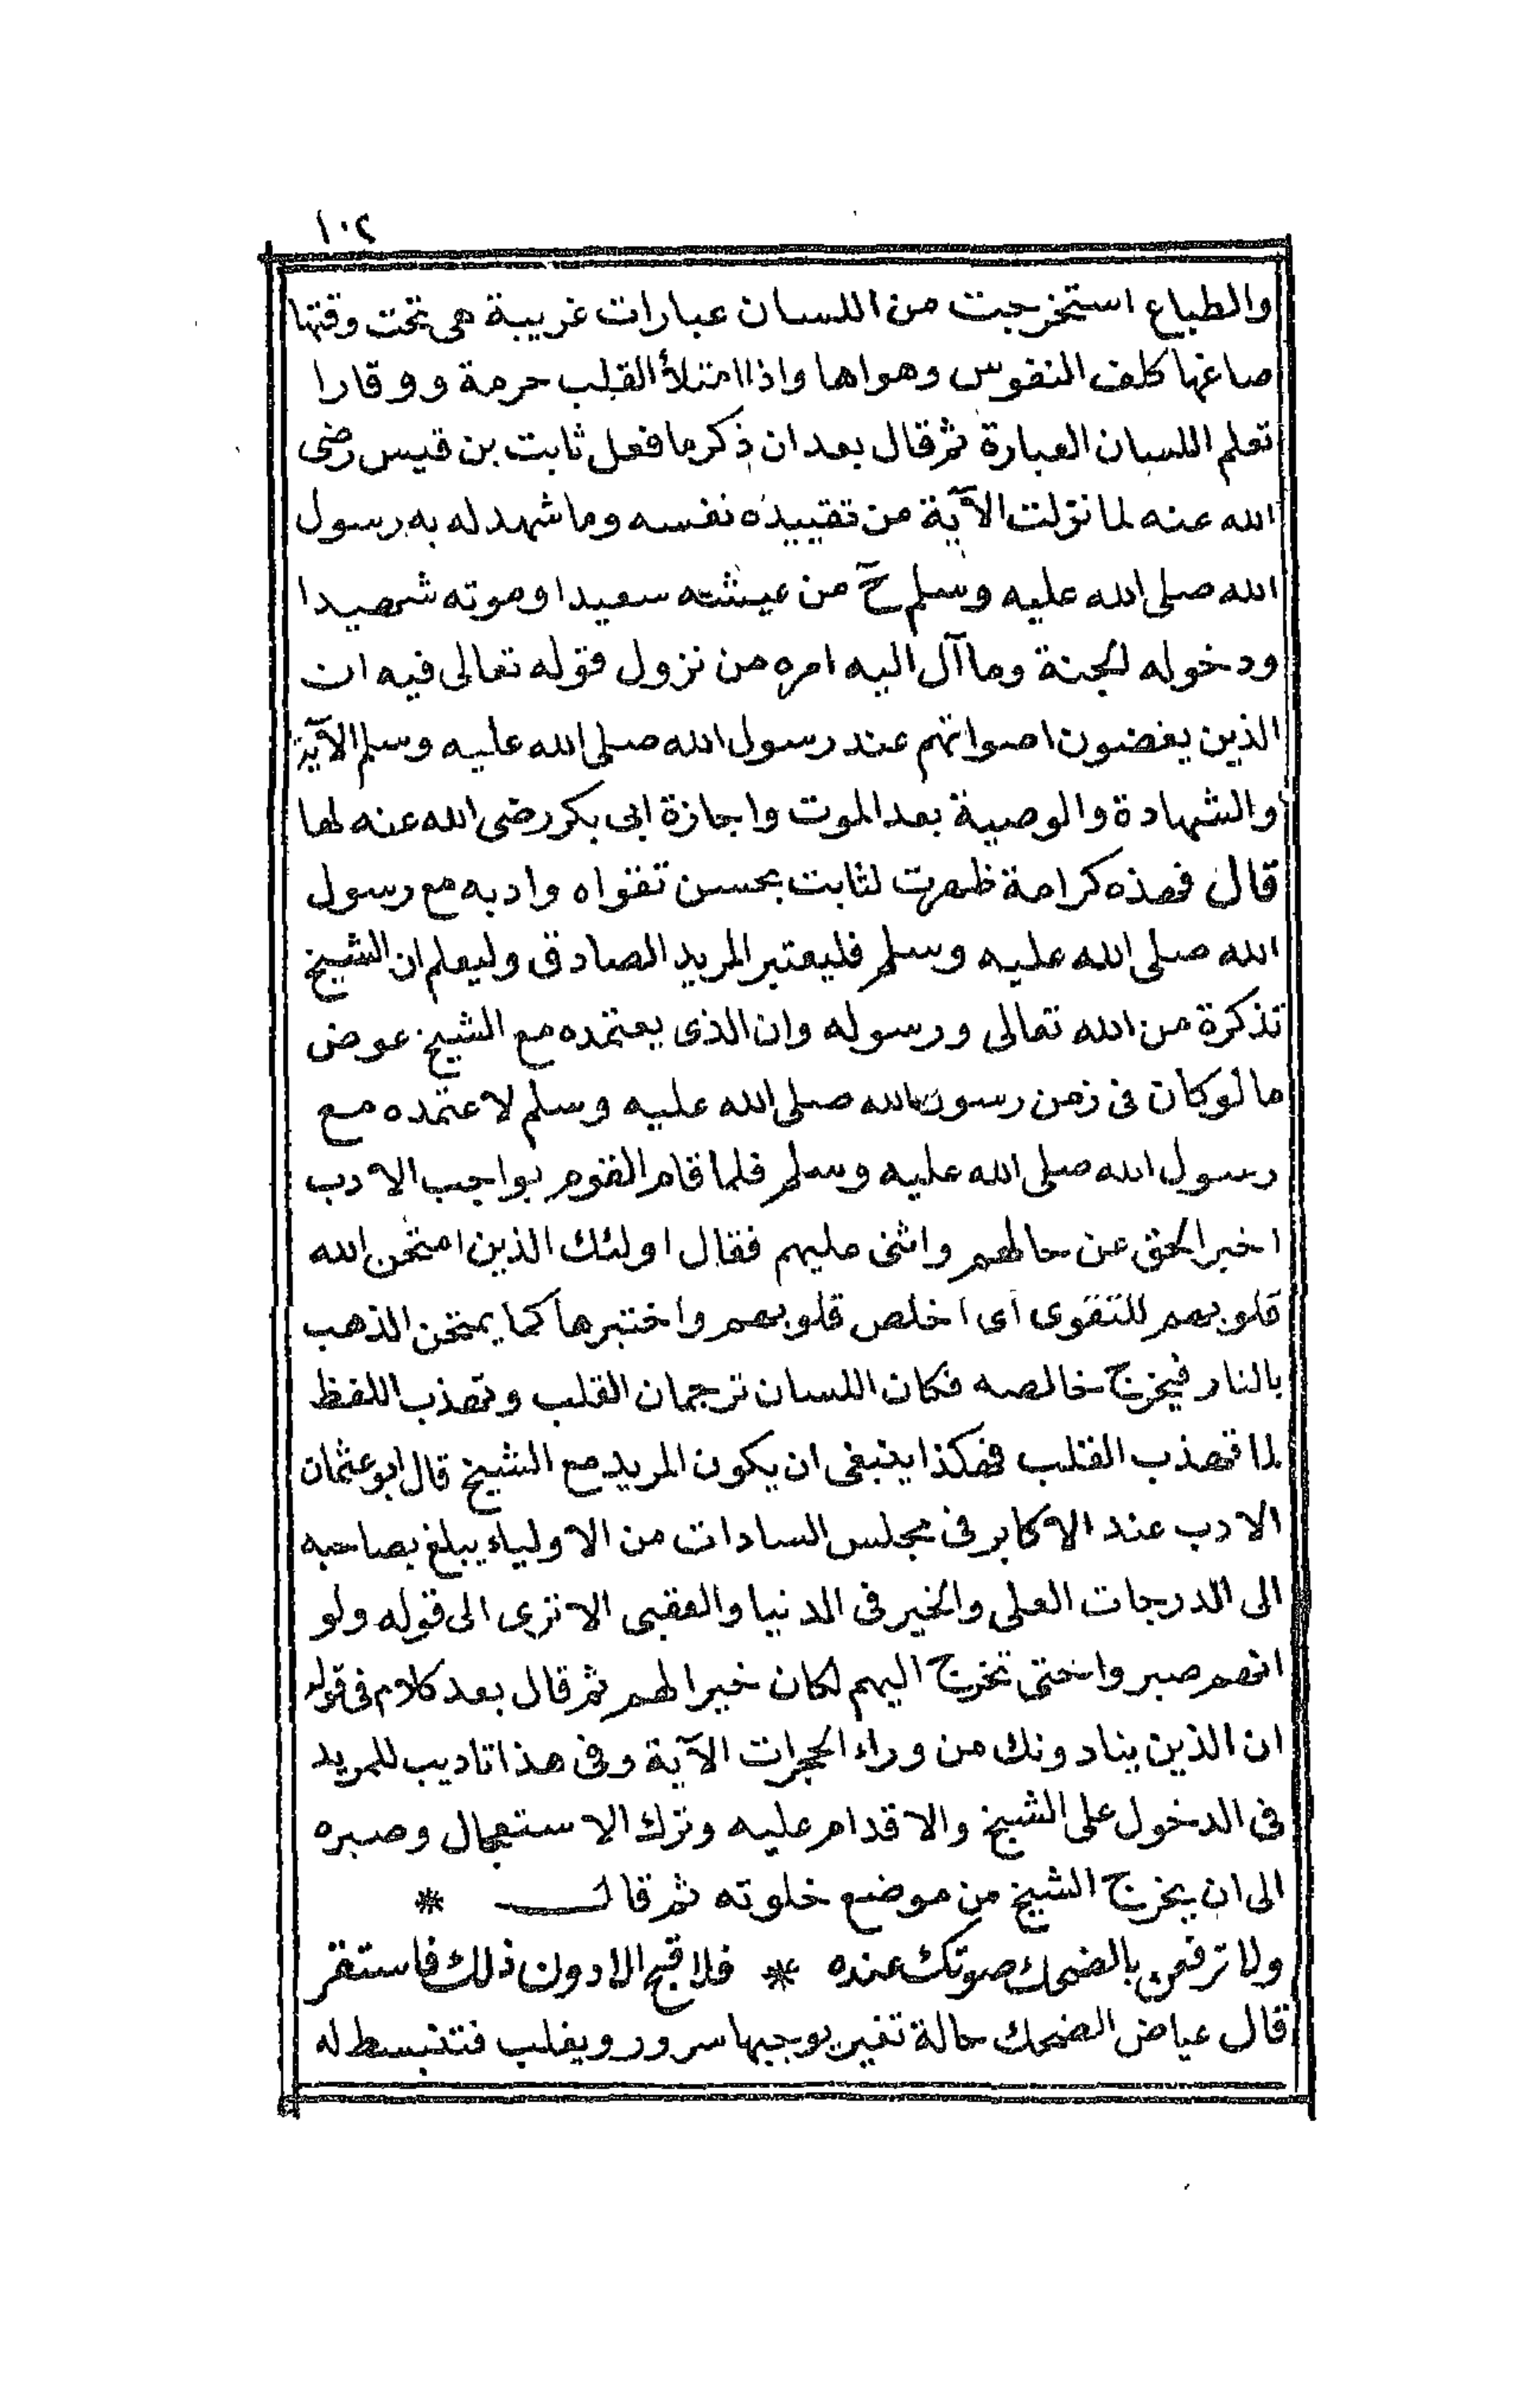 ١٠٢
والطباع استخرجت من اللسان عبارات غريبة هى تحت وقتها
صاغها كلف النفوس وهواها واذا امتلأ القلب حرمة ووقارا
تعلم اللسان العبارة ثم قال بعد ان ذكر ما فعل ثابت بن قيس رضى
الله عنه لما نزلت الآية من تقييده نفسه وما شهد له به رسول
الله صلى الله عليه وسلم ح من عيشته سعيدا وموته شهيدا
ودخوله الجنة وما آل اليه امره من نزول قوله تعالى فيه ان
الذين يغضون اصواتهم عند رسول الله صلى الله عليه وسلم الآية
والشهادة والوصية بعد الموت واجازة ابى بكر رضى الله عنه لها
قال فهذه كرامة ظهرت لثابت بحسن تقواه وادبه مع رسول
الله صلى الله عليه وسلم فليعتبر المريد الصادق وليعلم ان الشيخ
تذكرة من الله تعالى ورسوله وان الذى يعتمده مع الشيخ عوض
ما لو كان فى زمن رسول الله صلى الله عليه وسلم لاعتمده مع
رسول الله صلى الله عليه وسلم فلما قام القوم بواجب الادب
اخبر الحق عن حالهم واثنى عليهم فقال اولئك الذين امتحن الله
قلوبهم للتقوى اى اخلص قلوبهم واختبرها كما يمتحن الذهب
بالنار فيخرج خالصه فكان اللسان ترجمان القلب وتهذب اللفظ
لما تهذب القلب فهكذا ينبغى ان يكون المريد مع الشيخ قال ابو عثمان
الادب عند الاكابر فى مجلس السادات من الاولياء يبلغ بصاحبه
الى الدرجات العلى والخير فى الدنيا والعقبى الا ترى الى قوله ولو
انهم صبروا حتى تخرج اليهم لكان خيرا لهم ثم قال بعد كلام فى قوله
ان الذين ينادونك من وراء الحجرات الآية وفى هذا تاديب للمريد
فى الدخول على الشيخ والاقدام عليه وترك الاستعجال وصبره
الى ان يخرج الشيخ من موضع خلوته ثم قال *
ولا ترفعن بالضحك صوتك عنده * فلا قبح الا دون ذلك فاستقر
قال عياض الضحك حالة تغير يوجبها سرور ويغلب فتنبسط له